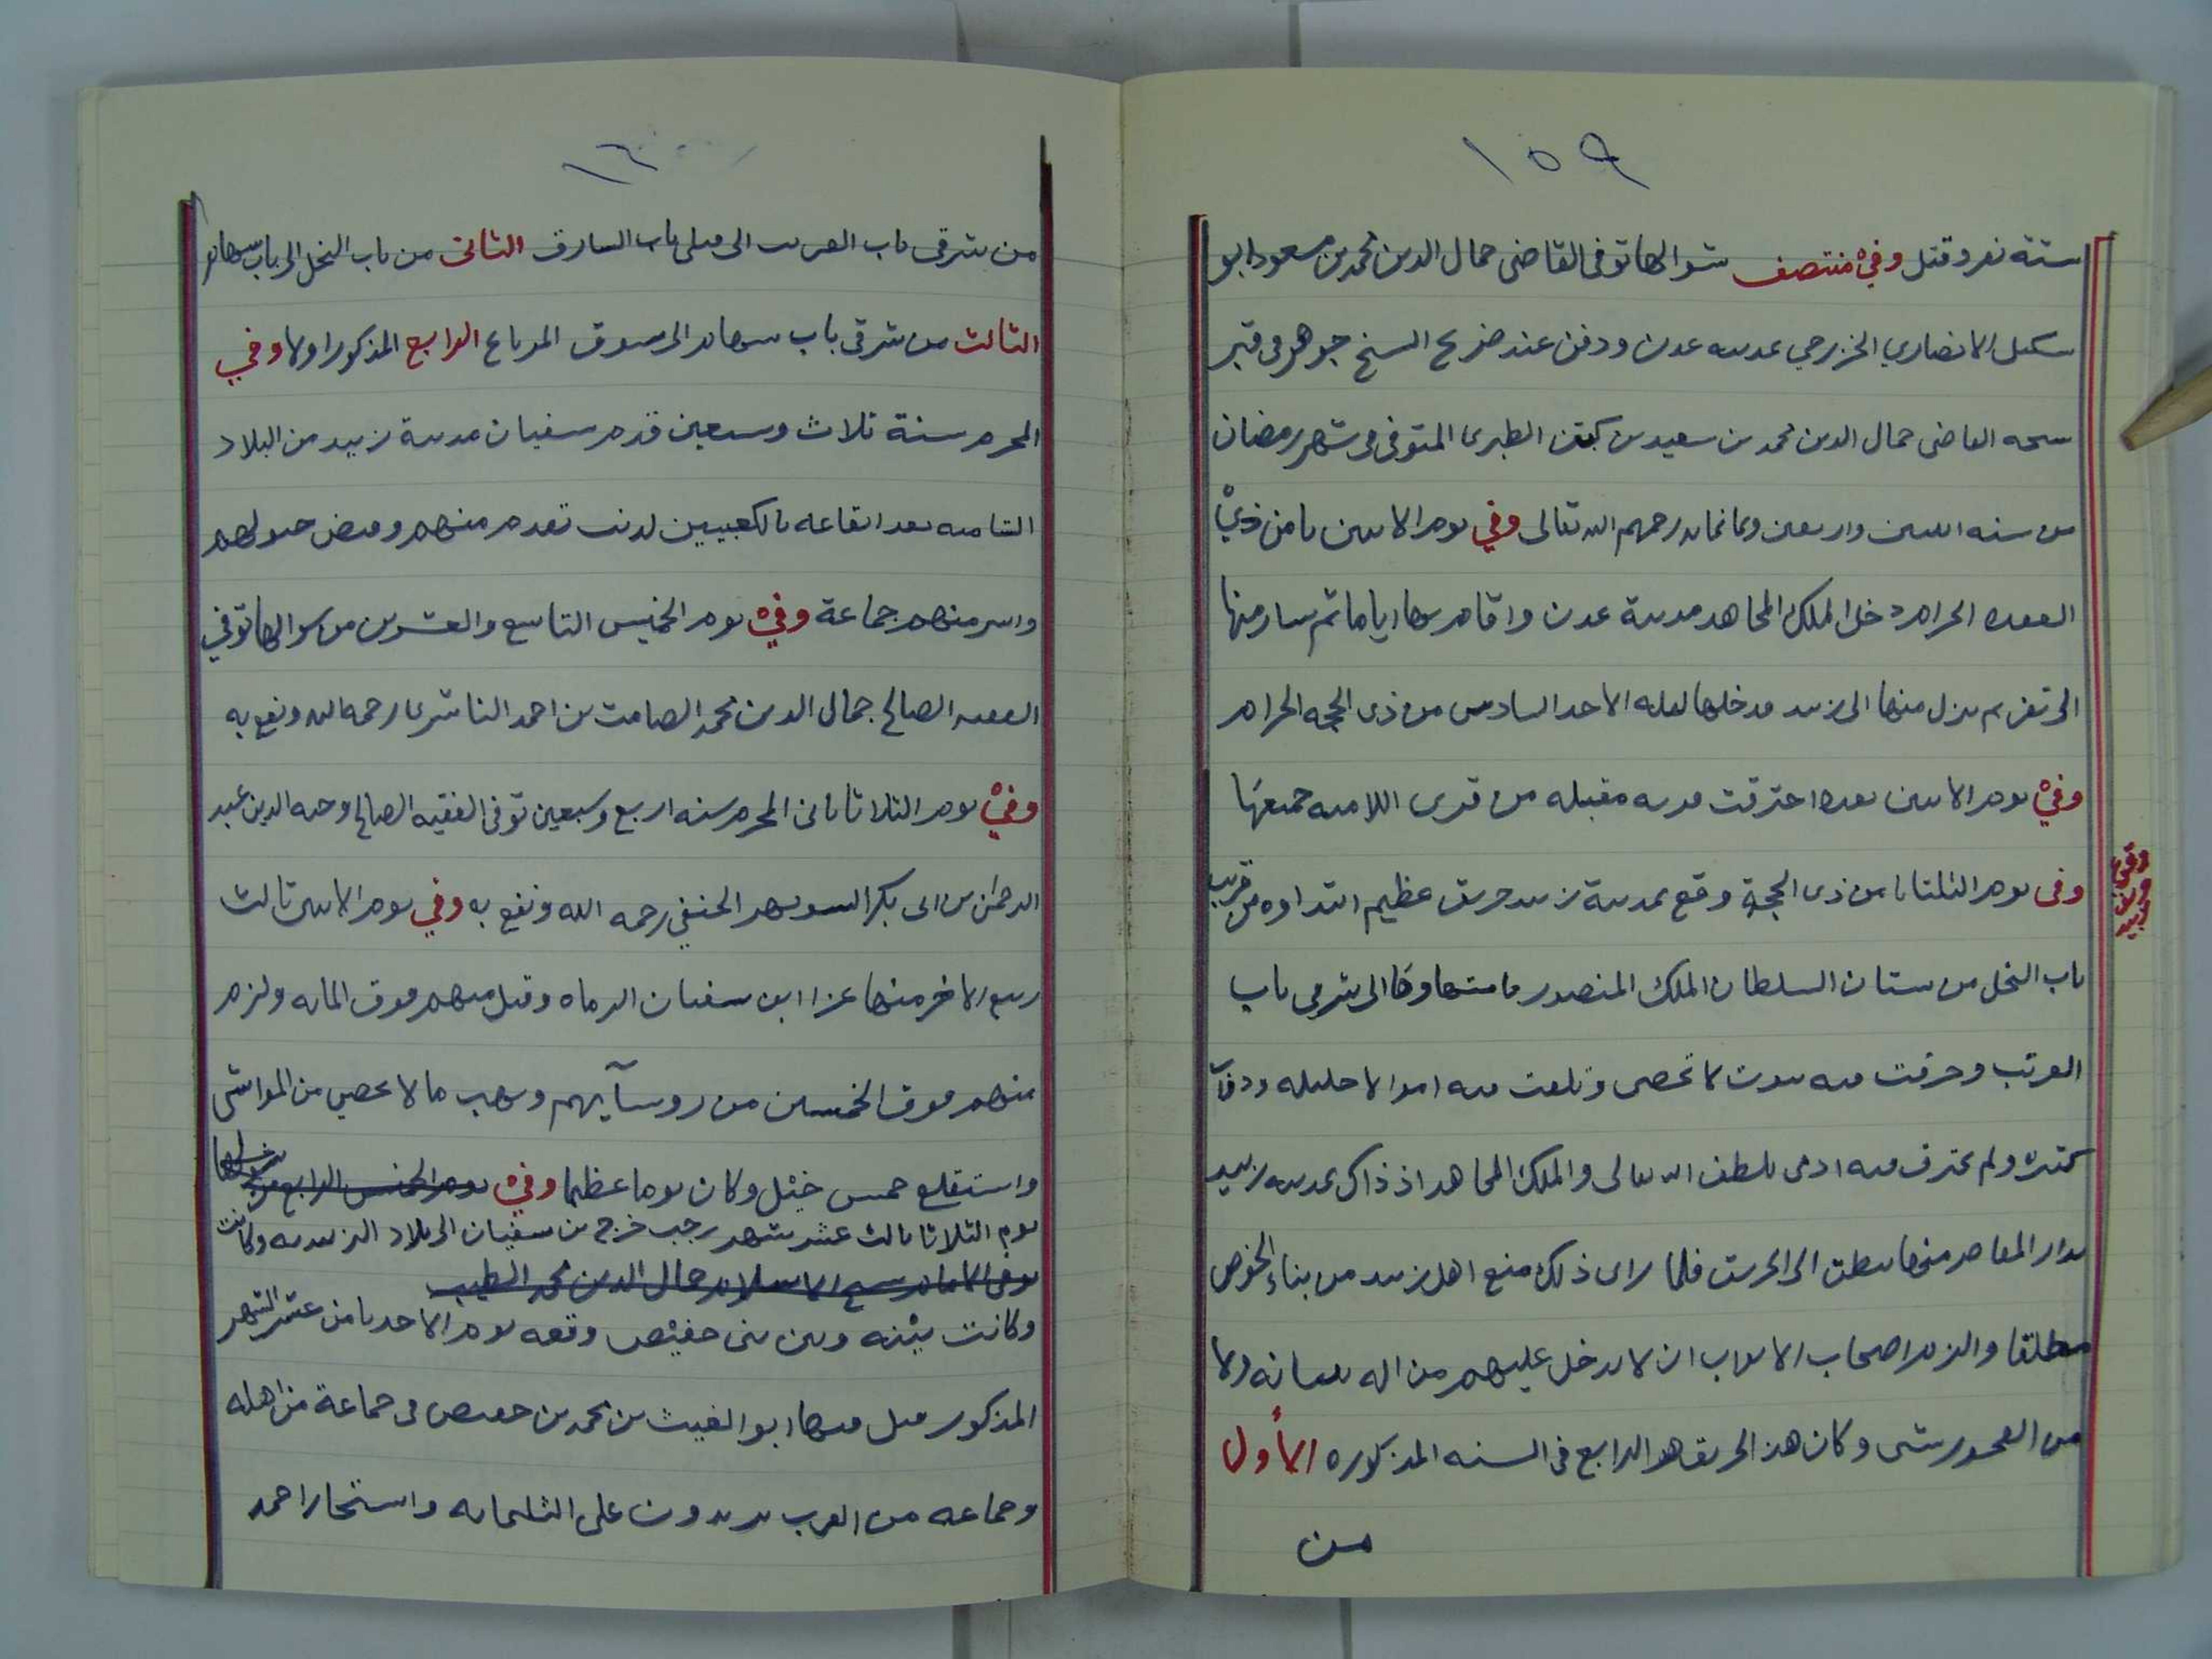 ١٥٩
ستة نفر وقتل وفي منتصف شوالها توفى القاضى جمال الدين محمد بن مسعود ابو
شكيل الانصاري الخزرجي بمدينه عدن ودفن عند ضريح الشيخ جوهر في قبر
شيخه القاضى جمال الدين محمد بن سعيد بن كبن الطبرى المتوفى في شهر رمضان
من سنه اثنين واربعين وثمانمايه رحمهم الله تعالى وفي يوم الاثنين ثامن ذي
القعده الحرام دخل الملك المجاهد مدينة عدن واقام بها اياما ثم سار منها
الى تعز ثم نزل منها الى زبيد فدخلها ليله الاحد السادس من ذى الحجه الحرام
وفي يوم الاثنين بعده احترقت قريه مقبله من قرى اللاميه جميعها
وفى يوم الثلثا ثامن ذى الحجة وقع بمدينة زبيد حريق عظيم ابتداوه من قريب
وقوع حريق زبيد
باب النخل من بستان السلطان الملك المنصور فامتد الى شرقي باب
القرتب وحرقت فيه بيوت لا تحصى وتلفت فيه اموالا جليله ودواب
كثيره ولم يحترف فيه ادمى بلطف الله تعالى والملك المجاهد اذ ذاك بمدينه زبيد
بدار المقاصر منها ينظر الى الحريق فلما راى ذلك منع اهل زبيد من بناء الخوص
مطلقا والزم اصحاب الابواب ان لا يدخل عليهم من اله ولا
من العجور شى وكان هذا الحريق هو الرابع في السنه المذكوره الأول
من
١٦٠
من شرقى باب القرتب الى قبلى باب الشبارق الثانى من باب النخل الى باب سهام
الثالث من شرقى باب سهام الى سوق المرباع الرابع المذكور اولا وفي
المحرم سنة ثلاث وسبعين قدم سفيان مدينة زبيد من البلاد
الشاميه بعد ايقاعه بالكعبيين لذنب تقدم منهم وقبض خيولهم
واسر منهم جماعة وفي يوم الخميس التاسع والعشرين من شوالها توفي
الفقيه الصالح جمال الدين محمد الصامت بن احمد الناشرى رحمه الله ونفع به
وفي يوم الثلاثا ثانى المحرم سنه اربع وسبعين توفى الفقيه الصالح وجيه الدين عبد
الرحمن بن ابى بكر السويهر الحنفي رحمه الله ونفع به وفي يوم الاثنين ثالث
ربيع الاخر منها غزا ابن سفيان الرماه وقتل منهم فوق المايه ولزم
منهم فوق الخمسين من روسآيهم ونهب ما لا يحصى من المواشى
واستقلع خمس خيل وكان يوما عظيما وفي يوم الخميس الرابع من
يوم الثلاثا ثالث عشر شهر رجب خرج بن سفيان الى بلاد الزيديه وكانت
توفى الامام شيخ الاسلام جمال الدين محمد الطيب
وكانت بينه وبين بنى حفيص وقعه يوم الاحد ثامن عشر الشهر
المذكور قتل فيها ابو الغيث بن محمد بن حفيص في جماعة من اهله
وجماعه من العرب يزيدون على الثلثمايه واستجار احمد